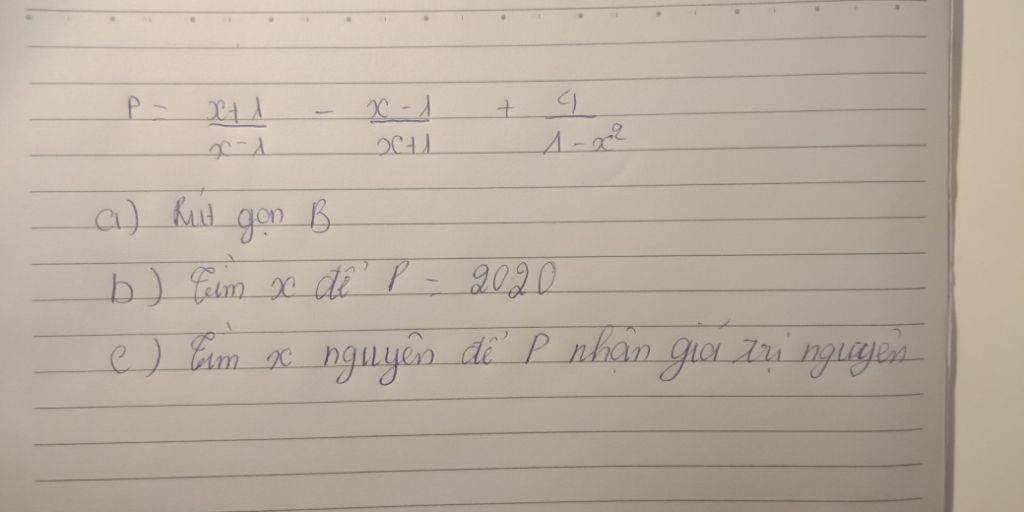 P = \frac{x+1}{x-1} - \frac{x-1}{x+1} + \frac{4}{1-x^2}
a) Rút gọn B
b) Tìm x để P = 2020
c) Tìm x nguyên để P nhận giá trị nguyên